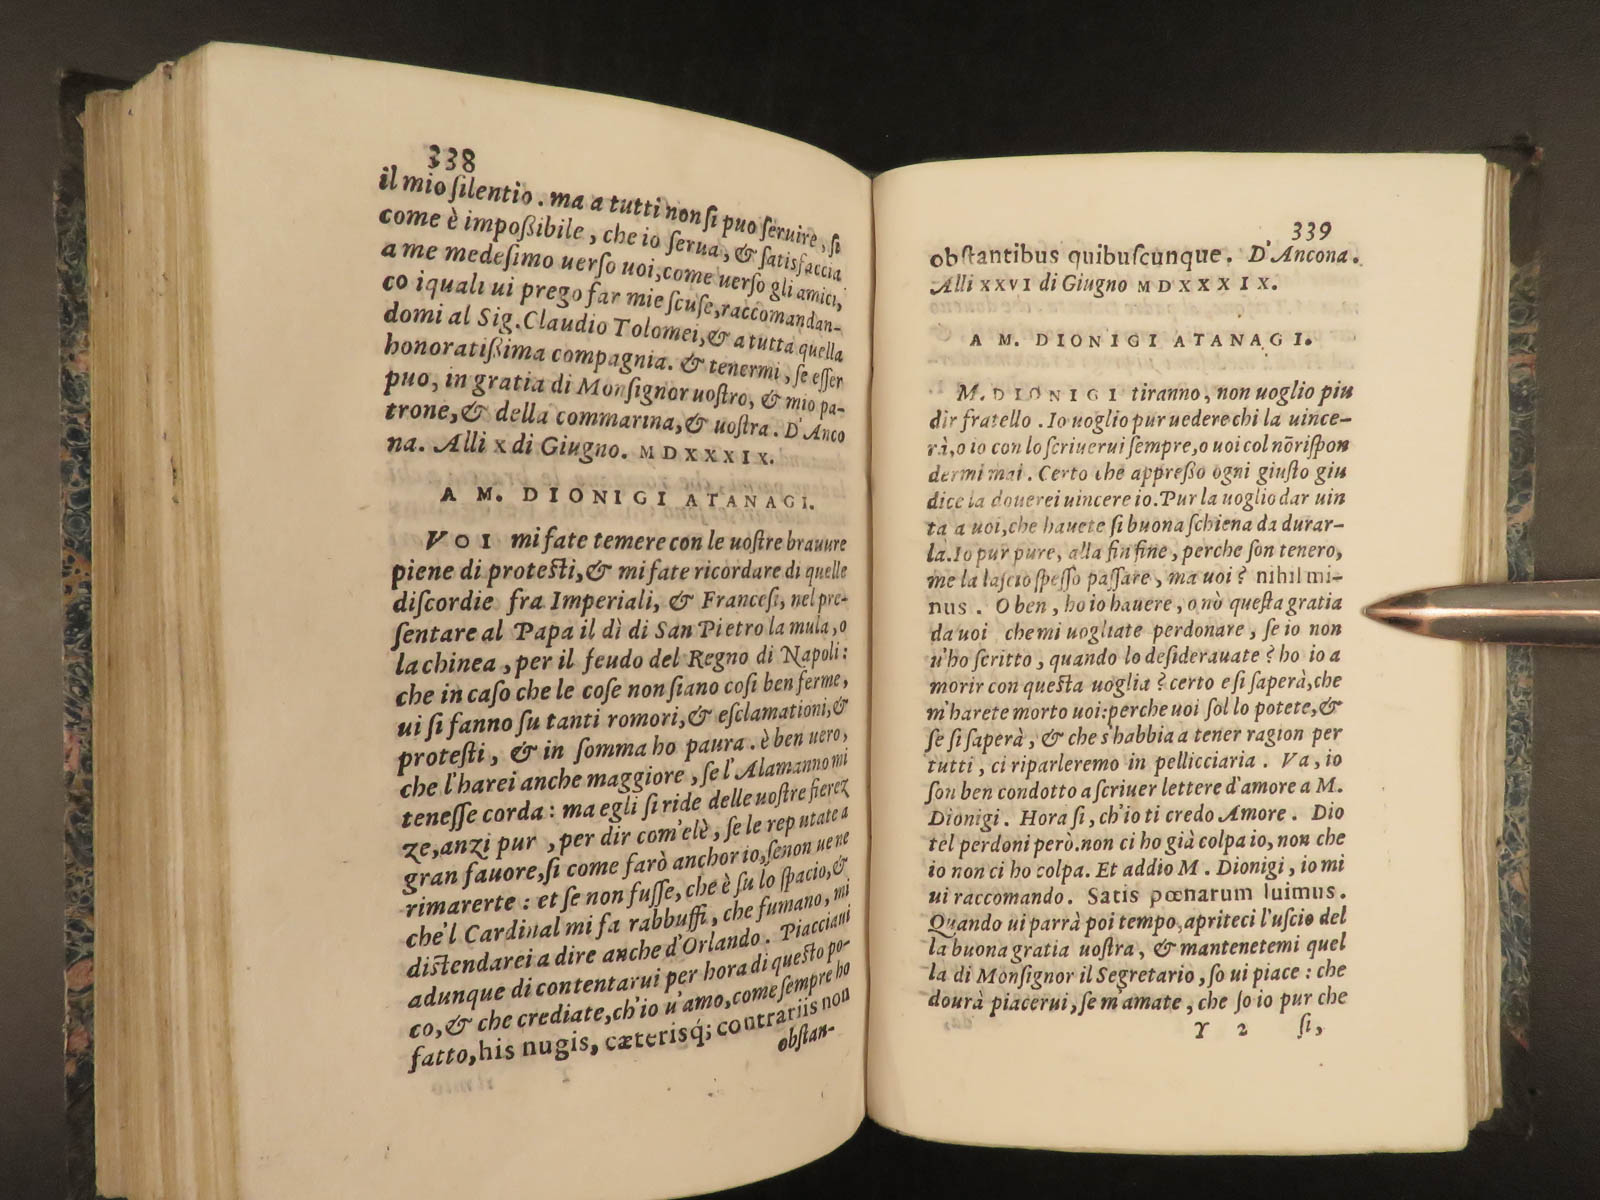 338
il mio ſilentio. ma a tutti non ſi puo ſeruire, ſi
come è impoßibile, che io ſerua, & ſatisfaccia
a me medeſimo uerſo uoi, come uerſo gli amici,
co i quali ui prego far mie ſcuſe, raccomandan-
domi al Sig. Claudio Tolomei, & a tutta quella
honoratißima compagnia. & tenermi, ſe eſſer
puo, in gratia di Monſignor uoſtro, & mio pa-
trone, & della commarina, & uoſtra. D'Anco
na. Alli X di Giugno. MDXXXIX.
A M. DIONIGI ATANAGI.
VOI mi fate temere con le uoſtre brauure
piene di proteſti, & mi fate ricordare di quelle
diſcordie fra Imperiali, & Franceſi, nel pre-
ſentare al Papa il dì di San Pietro la mula, o
la chinea, per il feudo del Regno di Napoli:
che in caſo che le coſe non ſiano coſi ben ferme,
ui ſi fanno ſu tanti romori, & eſclamationi, &
proteſti, & in ſomma ho paura. è ben uero,
che l'harei anche maggiore, ſe l'Alamanno mi
teneſſe corda: ma egli ſi ride delle uoſtre fierez
ze, anzi pur, per dir com'elè, ſe le reputate a
gran fauore, ſi come farò anchor io, ſe non ue ne
rimarerte: et ſe non fuſſe, che è ſu lo ſpacio, &
che'l Cardinal mi fa rabbuffi, che fumano, mi
diſtendarei a dire anche d'Orlando. Piacciaui
adunque di contentarui per hora di queſto po-
co, & che crediate, ch'io u'amo, come ſempre ho
fatto, his nugis, cæterisq́; contrariis non
obſtan-
339
obſtantibus quibuſcunque. D'Ancona.
Alli XXVI di Giugno MDXXXIX.
A M. DIONIGI ATANAGI.
M. DIONIGI tiranno, non uoglio piu
dir fratello. Io uoglio pur uedere chi la uince-
rà, o io con lo ſcriuerui ſempre, o uoi col nõ riſpon
dermi mai. Certo che appreßo ogni giuſto giu
dice la douerei uincere io. Pur la uoglio dar uin
ta a uoi, che hauete ſi buona ſchiena da durar-
la. Io pur pure, alla fin fine, perche ſon tenero,
me la laſcio ſpeſſo paſſare, ma uoi? nihil mi-
nus. O ben, ho io hauere, o nò queſta gratia
da uoi che mi uogliate perdonare, ſe io non
u'ho ſcritto, quando lo deſiderauate? ho io a
morir con queſta uoglia? certo e ſi ſaperà, che
m'harete morto uoi: perche uoi ſol lo potete, &
ſe ſi ſaperà, & che s'habbia a tener ragion per
tutti, ci riparleremo in pellicciaria. Va, io
ſon ben condotto a ſcriuer lettere d'amore a M.
Dionigi. Hora ſi, ch'io ti credo Amore. Dio
tel perdoni però. non ci ho già colpa io, non che
io non ci ho colpa. Et addio M. Dionigi, io mi
ui raccomando. Satis pœnarum luimus.
Quando ui parrà poi tempo, apriteci l'uſcio del
la buona gratia uoſtra, & mantenetemi quel
la di Monſignor il Segretario, ſo ui piace: che
dourà piacerui, ſe m'amate, che ſo io pur che
Y 2 ſi,